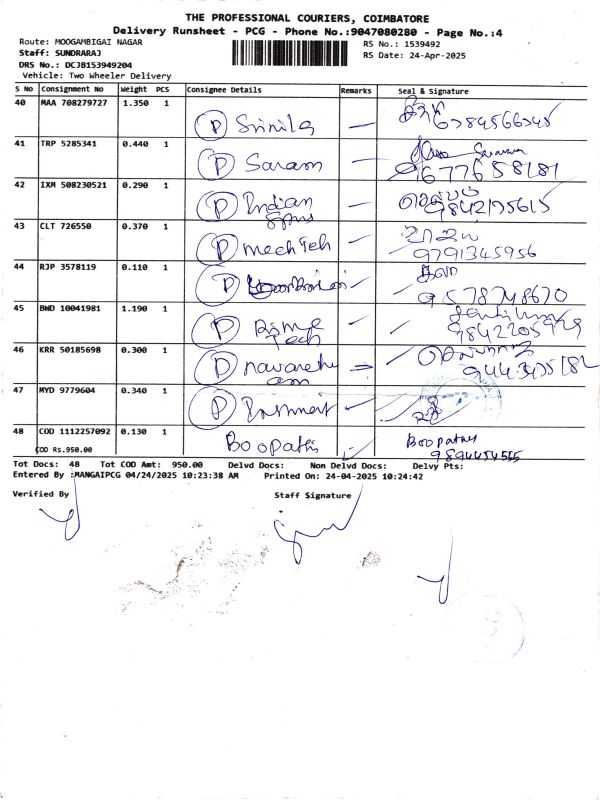 THE PROFESSIONAL COURIERS, COIMBATORE
Delivery Runsheet - PCG - Phone No.:9047080280 - Page No.:4
Route: MOOGAMBIGAI NAGAR
RS No.: 1539492
Staff: SUNDRARAJ
RS Date: 24-Apr-2025
DRS No.: DCJB153949204
Vehicle: Two Wheeler Delivery
S No Consignment No Weight PCS Consignee Details Remarks Seal & Signature
40 MAA 708279727 1.350 1
P Srinila
41 TRP 5285341 0.440 1
P Saravan
9677658181
42 IXM 508230521 0.290 1
P Indian
9842175615
43 CLT 726550 0.370 1
P Mech Teh
9791345956
44 RJP 3578119 0.110 1
P
9578748670
45 BWD 10041981 1.190 1
P Tech
46 KRR 50185698 0.300 1
P
47 MYD 9779604 0.340 1
P
48 COD 1112257092 0.130 1
Boopathi Boopathi
COD Rs.950.00
Tot Docs: 48 Tot COD Amt: 950.00 Delvd Docs: Non Delvd Docs: Delvy Pts:
Entered By :MANGAIPCG 04/24/2025 10:23:38 AM Printed On: 24-04-2025 10:24:42
Verified By Staff Signature